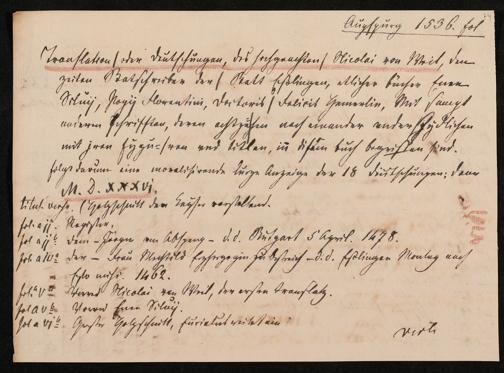 Augspurg 1536. fol
Translation/ oder Deutschungen, des hochgeachten/ Nicolai von Weil, den
zeiten Statschreiber der/ Statt Eßlingen, etlicher bücher Enee
Siluij, Pogij Florentini, Doctoris/ Felicis Hemerlin, Mit sampt
anderen Schrifften, deren achtzehen nach einander underschydlichen
mit jren Figuren und titlen, in disem buch begriffen sind.
folgt darum eine moralisirende kurze Anzeige der 18 Deutschungen; dann
M. D. xxxvj.
titul. verso. (Holzschnitt den Kayser vorstellend.
fol. a ij. Register.
fol. a ij b Dem – Jörgen von Absperg – d. d. Stutgart 5 April. 1478.
fol. a iv a Der – Frau Mechthild Erzherzogin zu Östreich – d. d. Eßlingen Montag nach
1462.
fol. a v a Vorred Nicolai von Weil, der ersten Translatz.
fol. a v b Vorred Enee Siluij.
fol. a vj b Erster Holzschnitt,
verte